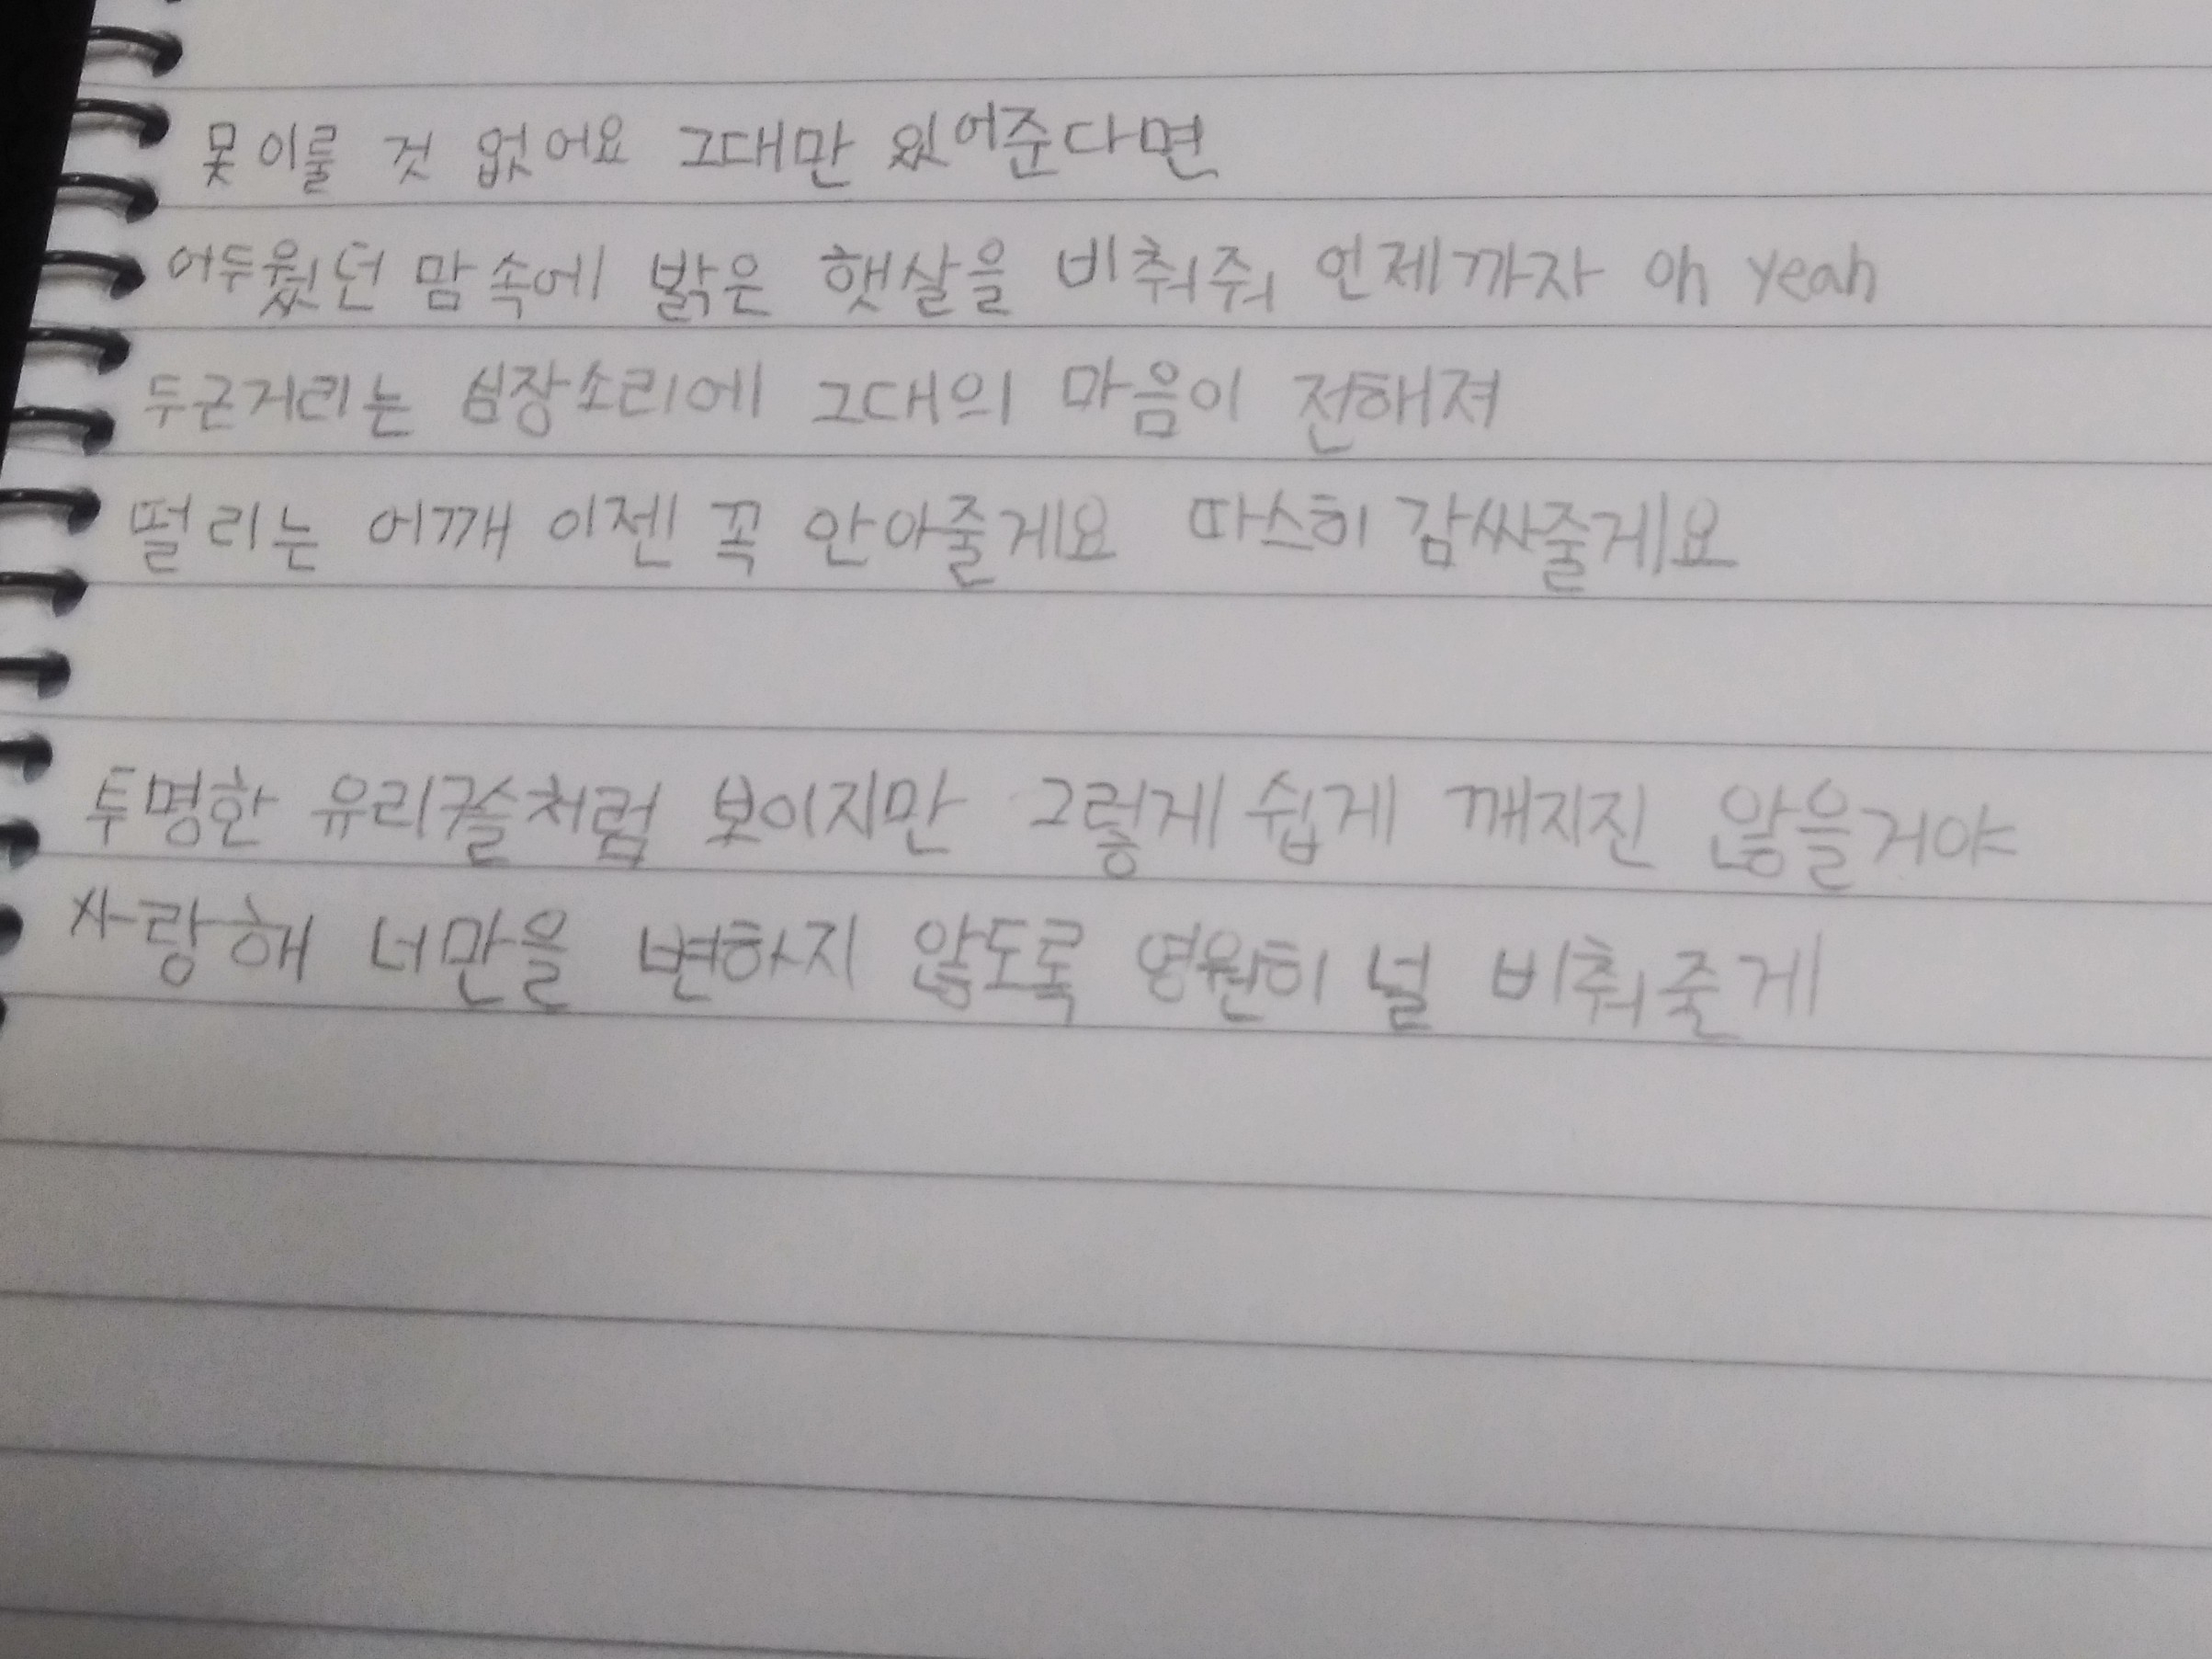 못 이룰 것 없어요 그대만 있어준다면
어두웠던 맘 속에 밝은 햇살을 비춰줘 언제까자 oh yeah
두근거리는 심장소리에 그대의 마음이 전해져
떨리는 어깨 이젠 꼭 안아줄게요 따스히 감싸줄게요
투명한 유리구슬처럼 보이지만 그렇게 쉽게 깨지진 않을거야
사랑해 너만을 변하지 않도록 영원히 널 비춰줄게